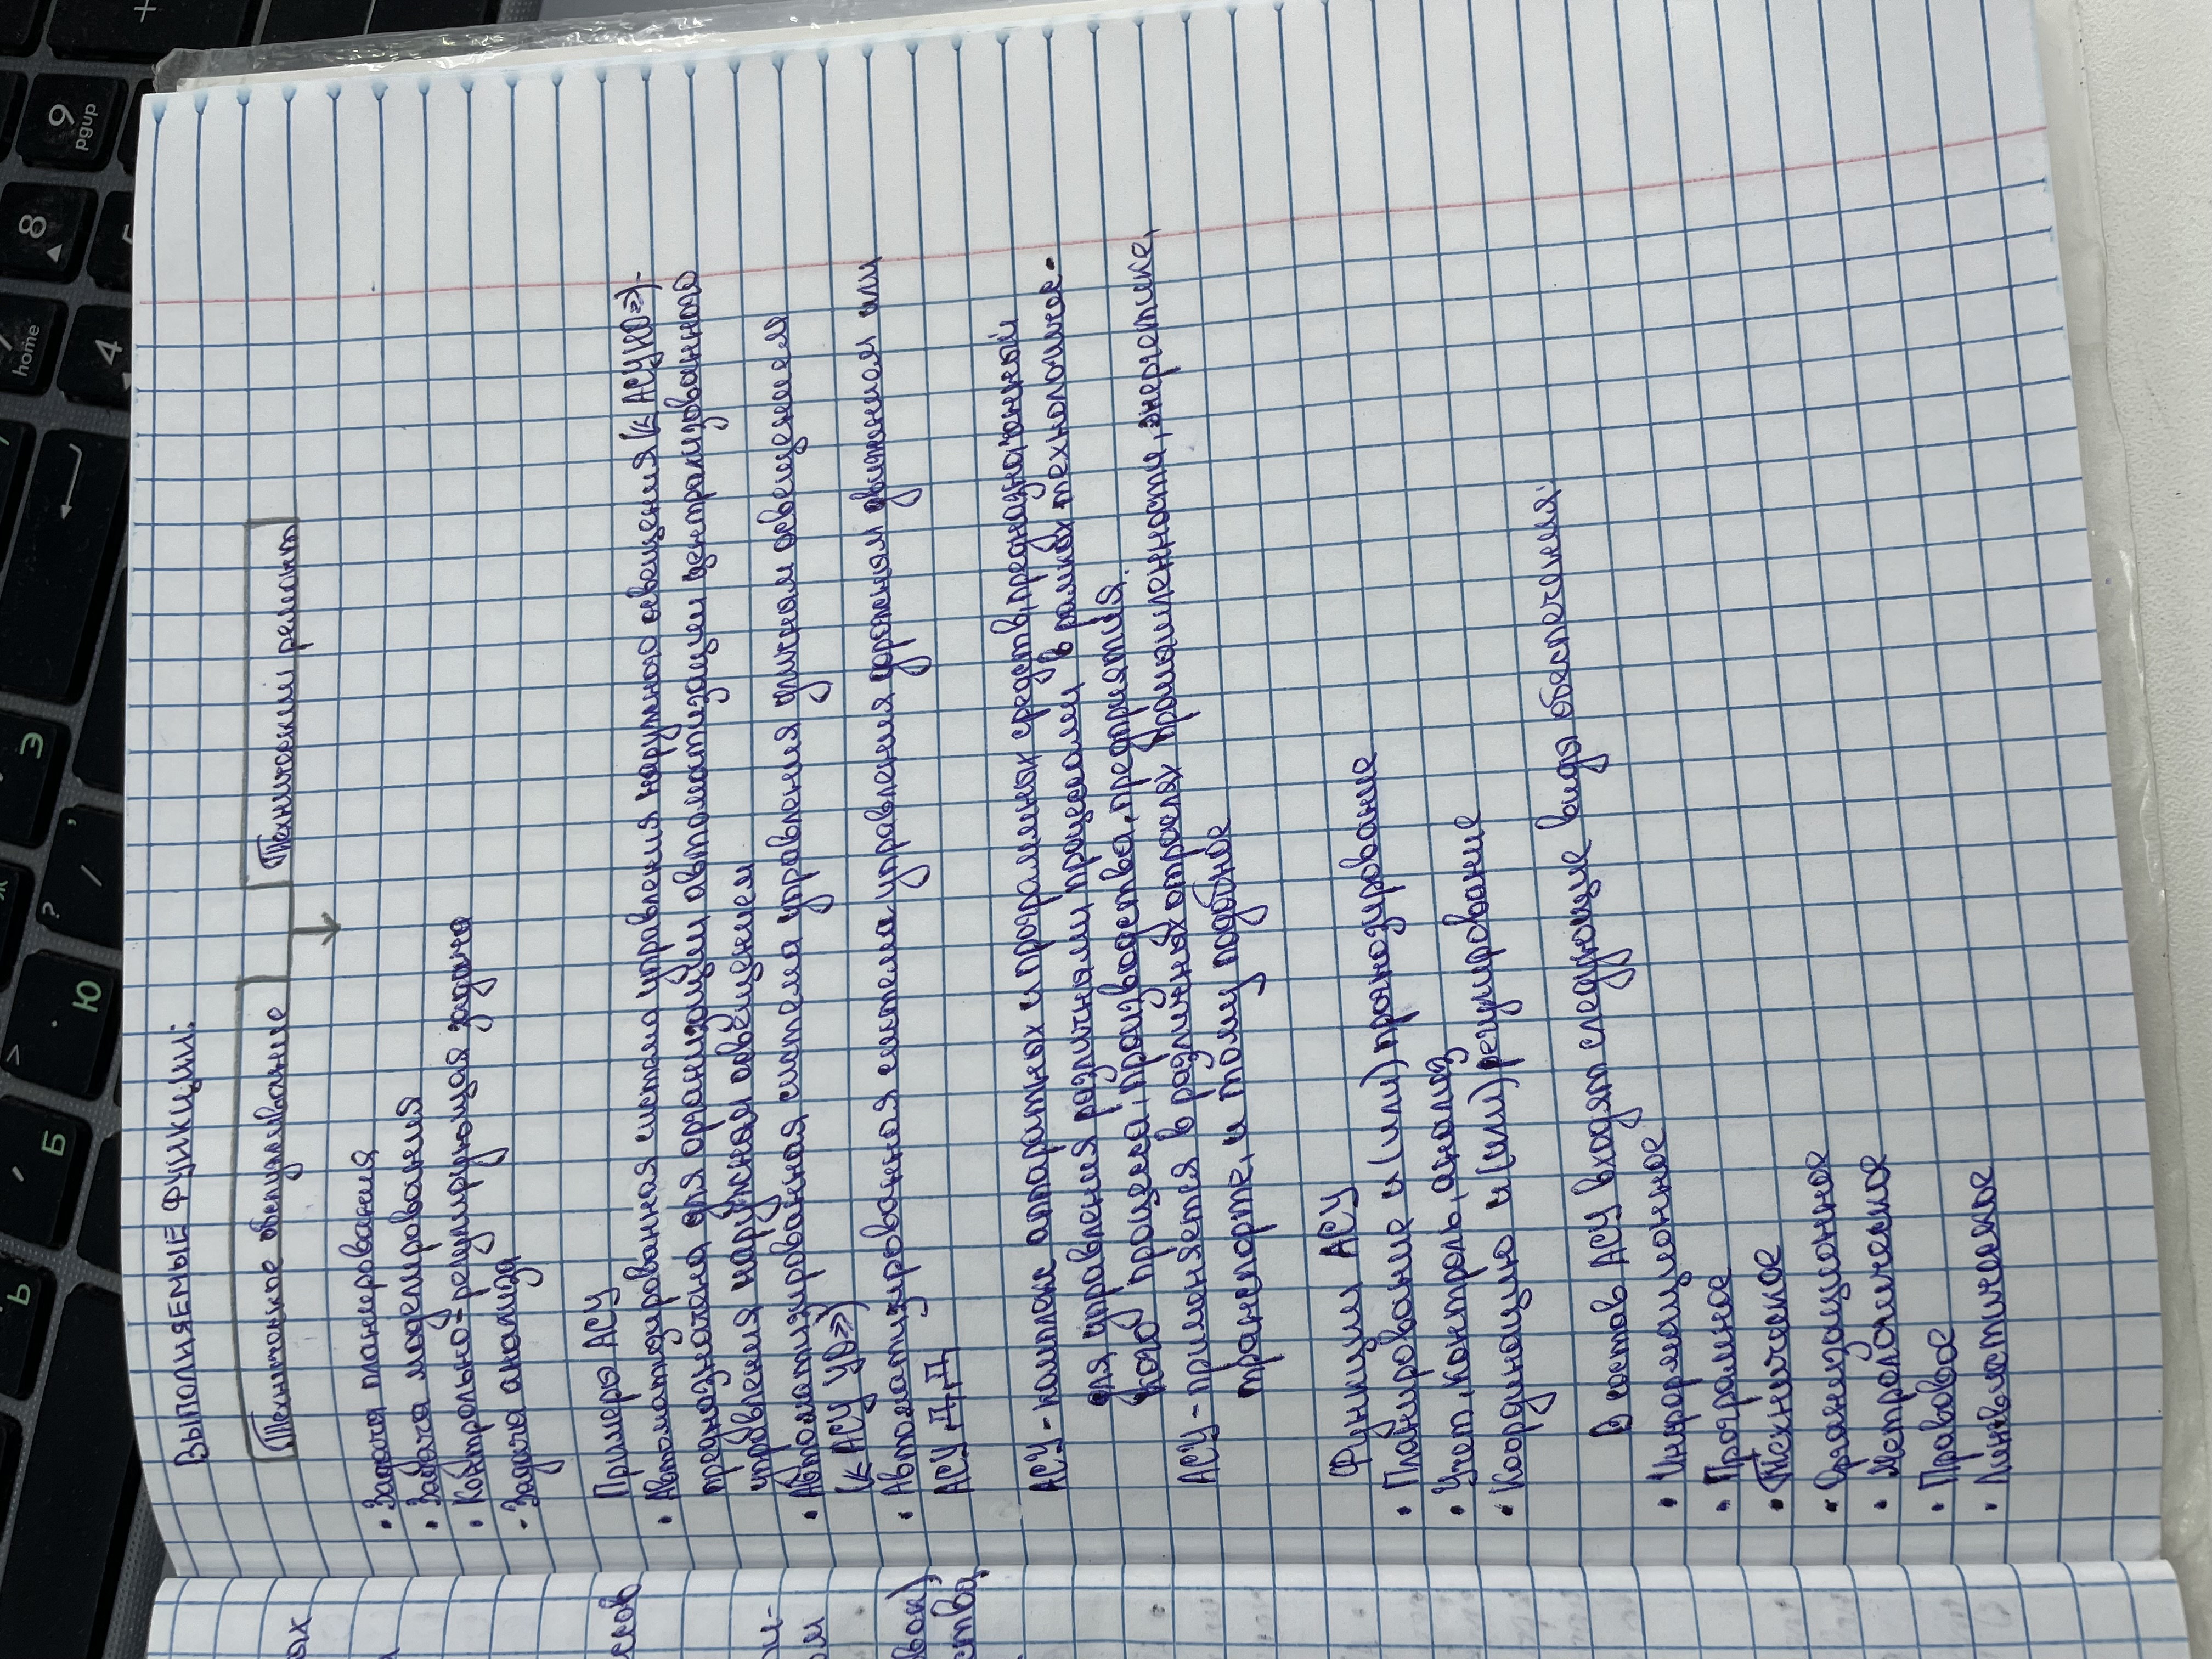 ВЫПОЛНЯЕМЫЕ ФУНКЦИИ:
Техническое обслуживание
Технический ремонт
• Задача планирования
• Задача моделирования
• Контрольно-регулирующая задача
• Задача анализа
Примеры АСУ
• Автоматизированная система управления наружного освещения («АСУНО»)-
предназначена для организации автоматизации централизованного
управления наружным освещением
• Автоматизированная система управления уличным освещением
(«АСУ УО»)
• Автоматизированная система управления дорожным движением или
АСУ ДД
АСУ - комплекс аппаратных и программных средств, предназначенный
для управления различными процессами в рамках технологичес-
кого процесса, производства, предприятия.
АСУ - применяется в различных отраслях промышленности, энергетике,
транспорте, и тому подобное
Функции АСУ
• Планирование и (или) прогнозирование
• Учет, контроль, анализ
• Координацию и (или) регулирование
В состав АСУ входят следующие виды обеспечения:
• Информационное
• Программное
• Техническое
• Организационное
• Метрологическое
• Правовое
• Лингвистическое
+
9
pgup
8
7
home
4
Э
Ж
?
/
Ю
>
Б
Ь